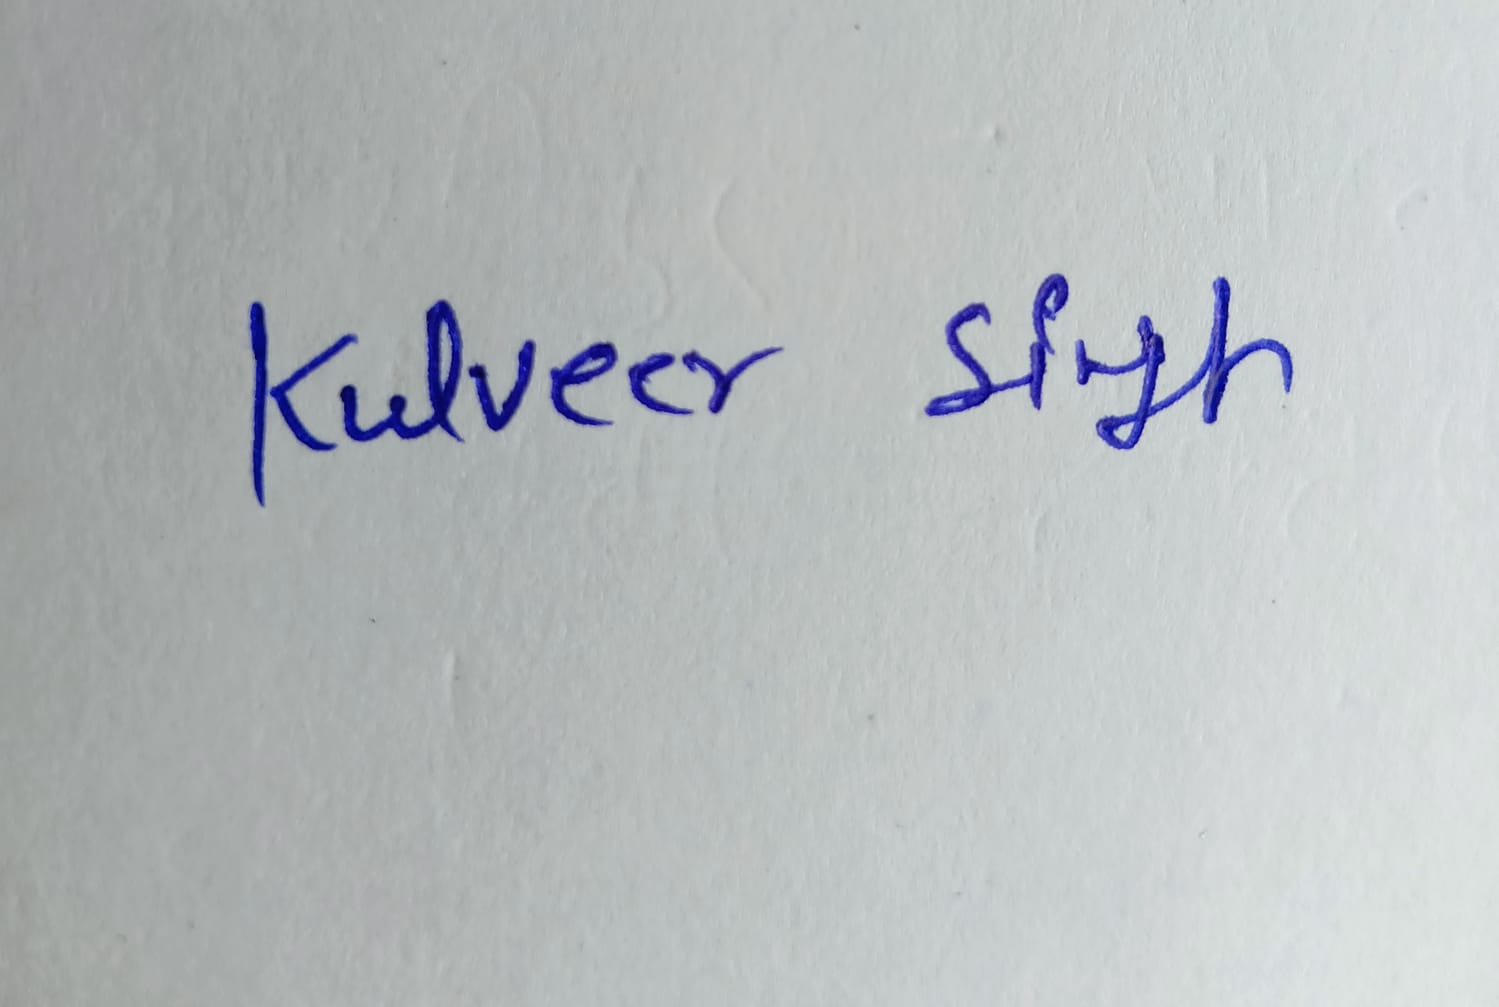 Kulveer Singh